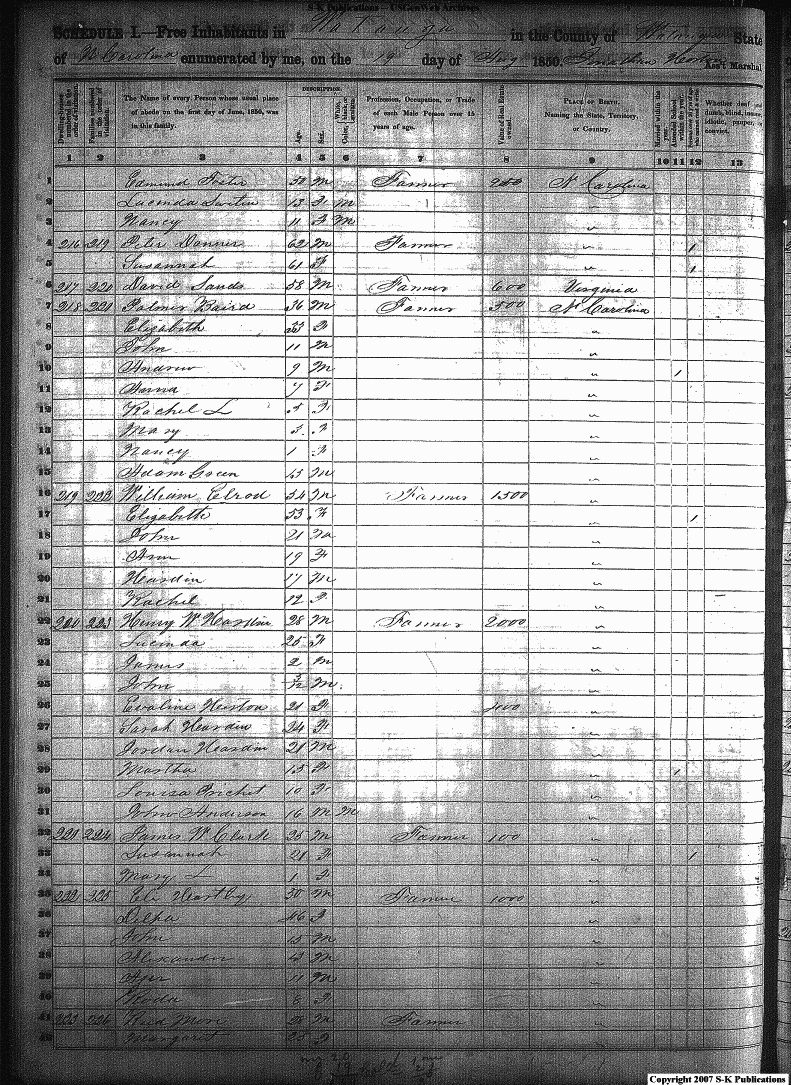 S-K Publications -- USGenWeb Archives
SCHEDULE I.—Free Inhabitants in Watauga in the County of Watauga State
of N Carolina enumerated by me, on the 19 day of Aug 1850. Jonathan Ass't Marshal
DESCRIPTION.
The Name of every Person whose usual place of abode on the first day of June, 1850, was in this family.
Age.
Sex.
Profession, Occupation, or Trade of each Male Person over 15 years of age.
Value of Real Estate owned.
PLACE OF BIRTH. Naming the State, Territory, or Country.
Married within the year.
Whether deaf and dumb, blind, insane, idiotic, pauper, or convict.
1 2 3 4 5 6 7 8 9 10 11 12 13
1 Edmund Foster 50 M Farmer 200 N Carolina
2 Lucinda 13 F M
3 Nancy 11 F M "
4 216 219 Peter 62 M Farmer " 1
5 Susannah 61 F " 1
6 217 220 David Sands 58 M Farmer 600 Virginia
7 218 221 Palmer Baird 36 M Farmer 500 N Carolina
8 Elizabeth 33 F "
9 John 11 M "
10 Andrew 9 M " 1
11 7 F "
12 Rachel L 5 F "
13 Mary 3 F "
14 Nancy 1 F "
15 Adam Green M "
16 219 222 William Elrod 54 M Farmer 1500 "
17 Elizabeth 53 F " 1
18 John 21 M "
19 Ann 19 F "
20 Heardin 17 M "
21 Rachel 12 F "
22 220 223 Henry W Heardin 28 M Farmer 2000 "
23 Lucinda 25 F "
24 James 2 M "
25 John M "
26 Evaline 21 F 1000 "
27 Sarah Heardin 24 F "
28 Jordan Heardin 21 M "
29 Martha 15 F " 1
30 Louisa 10 F "
31 John Anderson 16 M M "
32 221 224 James W Clark 25 M Farmer 100 "
33 Susannah 21 F " 1
34 Mary L 1 F "
35 222 225 Eli 50 M Farmer 1000 "
36 46 F "
37 John 15 M "
38 Alexander 13 M "
39 11 M "
40 Roda 8 F "
41 223 226 28 M Farmer "
42 Margaret 25 F "
Copyright 2007 S-K Publications